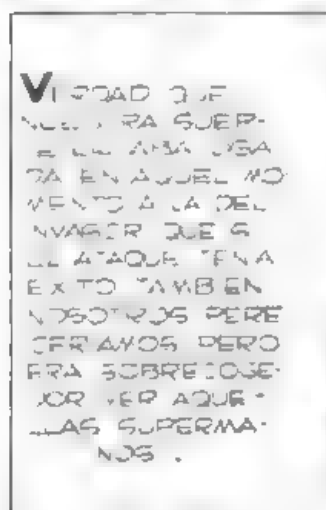 VERDAD QUE
NUESTRA SUER-
TE ESTABA LIGA
DA EN AQUEL MO
MENTO A LA DEL
INVASOR QUE SI
EL ATAQUE TENIA
EXITO TAMBIEN
NOSOTROS PERE
CERIAMOS PERO
ERA SOBRECOGE-
DOR VER AQUE-
LLAS SUPERMA-
NOS